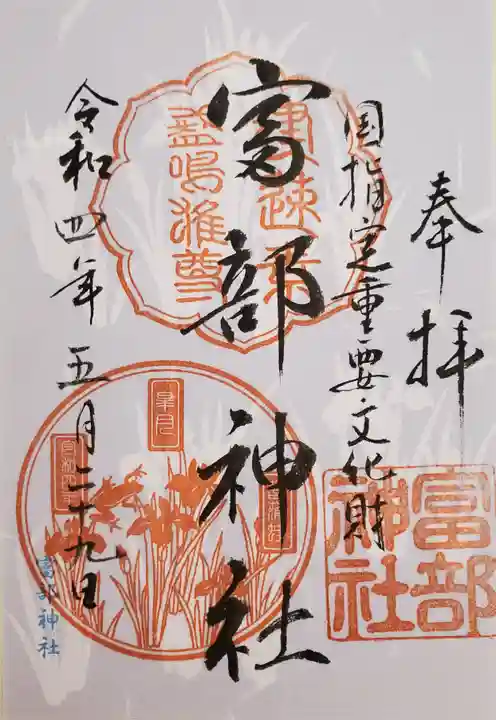 奉拝
国指定重要文化財
富部神社
令和四年五月二十九日
富部神社
皐月
富部神社